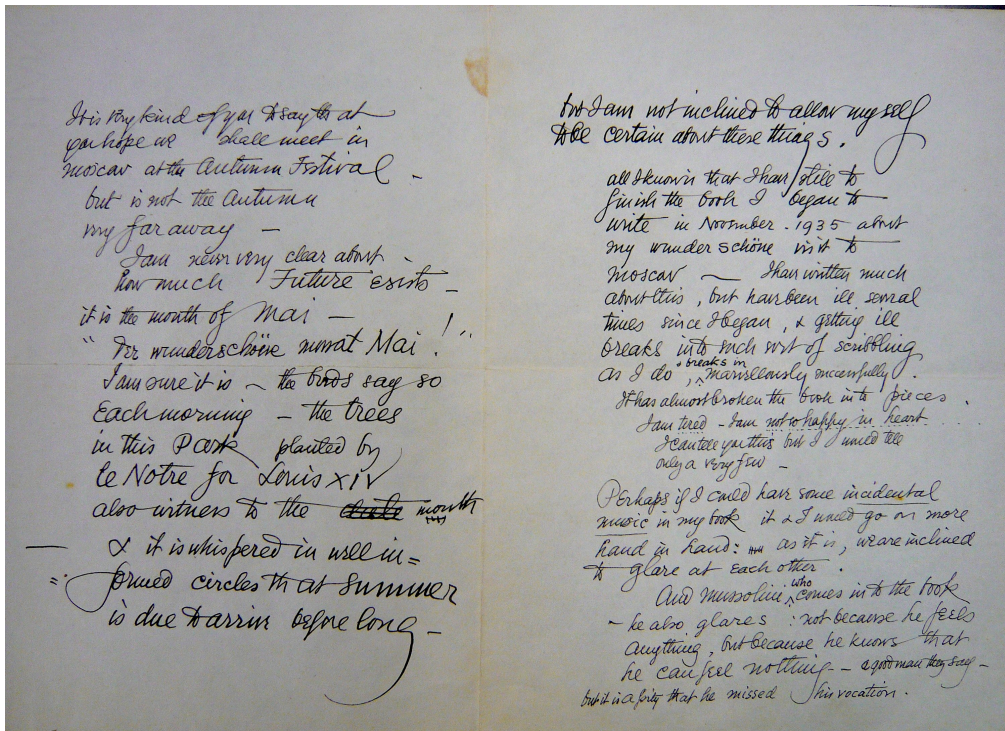 It is very kind of you to say that
you hope we shall meet in
moscow at the Autumn Festival –
but is not the Autumn
very far away —
I am never very clear about
how much Future Exists –
it is the month of Mai –
"Der wunderschöne monat Mai!"
I am sure it is – the birds say so
Each morning – the trees
in this Park planted by
le Notre for Louis XIV
also witness to the date month
— & it is whispered in well in=
=formed circles that summer
is due to arrive before long –
but I am not inclined to allow myself
to be certain about these things.
all I know is that I have still to
finish the book I began to
write in November – 1935 about
my wunderschöne visit to
moscow — I have written much
about this, but have been ill several
times since I began, & getting ill
breaks into such sort of scribbling
as I do, breaks in marvellously successfully.
It has almost broken the book into pieces.
I am tired – I am not so happy in heart
I can tell you this but I would tell
only a very few –
Perhaps if I could have some incidental
music in my book it & I would go on more
hand in hand: as it is, we are inclined
to glare at each other.
And mussolini who comes into the book
– he also glares: not because he feels
anything, but because he knows that
he can feel nothing – a good man they say –
but it is a pity that he missed his vocation.